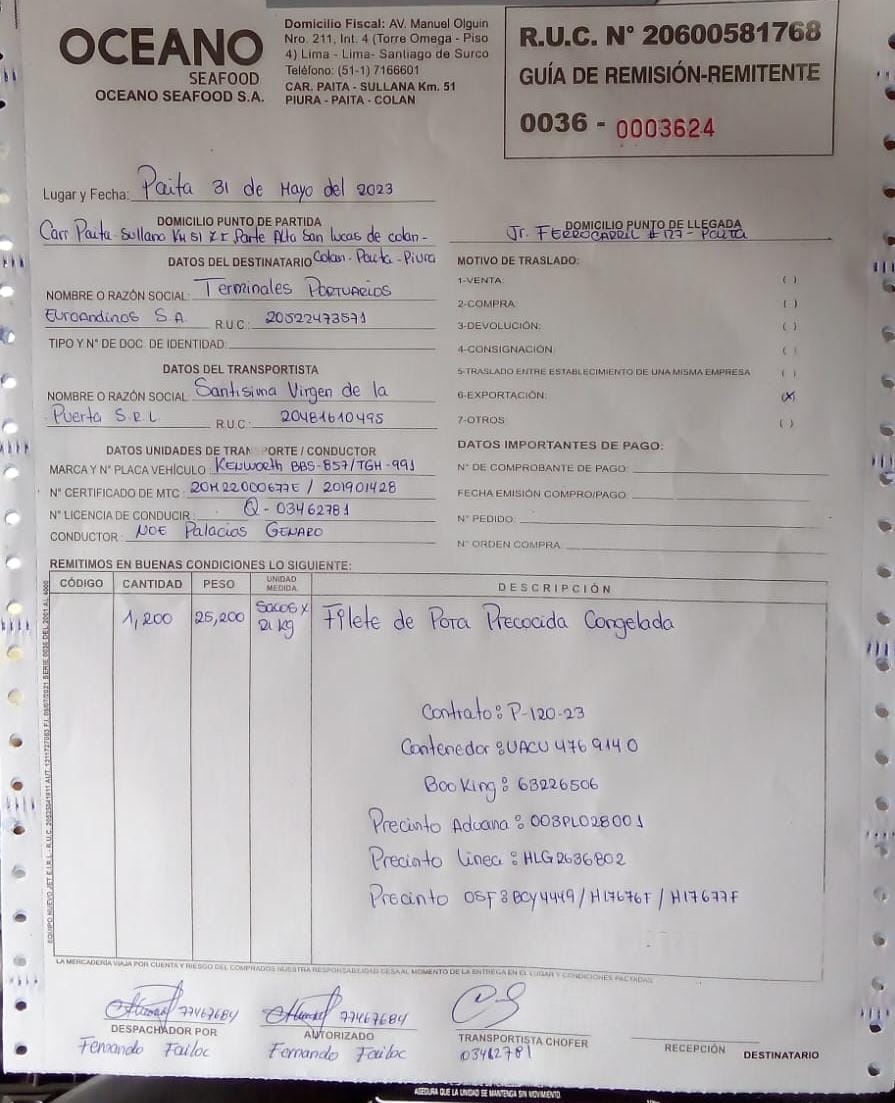 OCEANO
SEAFOOD
OCEANO SEAFOOD S.A.
Domicilio Fiscal: AV. Manuel Olguin
Nro. 211, Int. 4 (Torre Omega - Piso
4) Lima - Lima- Santiago de Surco
Teléfono: (51-1) 7166601
CAR. PAITA - SULLANA Km. 51
PIURA - PAITA - COLAN
R.U.C. N° 20600581768
GUÍA DE REMISIÓN-REMITENTE
0036 - 0003624
Lugar y Fecha: Paita 31 de Mayo del 2023
DOMICILIO PUNTO DE PARTIDA
Carr Paita-Sullana KM 51 Z I Parte Alta San Lucas de colan-
Colan-Paita-Piura
DOMICILIO PUNTO DE LLEGADA
Jr. FERROCARRIL # 127 - PAITA
DATOS DEL DESTINATARIO
NOMBRE O RAZÓN SOCIAL: Terminales PORTUARIOS
EuroAndinos S.A. R.U.C.: 20522473571
TIPO Y N° DE DOC. DE IDENTIDAD:
DATOS DEL TRANSPORTISTA
NOMBRE O RAZÓN SOCIAL: Santisima Virgen de la
Puerta S.R.L R.U.C.: 20481610495
DATOS UNIDADES DE TRANSPORTE / CONDUCTOR
MARCA Y N° PLACA VEHÍCULO: KENWORTH BBS-857/TGH-991
N° CERTIFICADO DE MTC: 20M22000677E / 201901428
N° LICENCIA DE CONDUCIR: Q - 03462781
CONDUCTOR: NOE Palacios GENARO
MOTIVO DE TRASLADO:
1-VENTA: ( )
2-COMPRA: ( )
3-DEVOLUCIÓN: ( )
4-CONSIGNACIÓN: ( )
5-TRASLADO ENTRE ESTABLECIMIENTO DE UNA MISMA EMPRESA ( )
6-EXPORTACIÓN: (X)
7-OTROS ( )
DATOS IMPORTANTES DE PAGO:
N° DE COMPROBANTE DE PAGO:
FECHA EMISIÓN COMPRO/PAGO:
N° PEDIDO:
N° ORDEN COMPRA
REMITIMOS EN BUENAS CONDICIONES LO SIGUIENTE:
CÓDIGO CANTIDAD PESO UNIDAD MEDIDA DESCRIPCIÓN
1,200 25,200 Sacos x 21 kg Filete de Pota Precocida Congelada
Contrato: P-120-23
Contenedor: UACU 476 914 0
Booking: 63226506
Precinto Aduana: 003PL028001
Precinto Linea: HLG2636802
Precinto OSF3BCY4449/H17676F/H17677F
LA MERCADERÍA VIAJA POR CUENTA Y RIESGO DEL COMPRADOS NUESTRA RESPONSABILIDAD CESA AL MOMENTO DE LA ENTREGA EN EL LUGAR Y CONDICIONES PACTADAS
77467684
DESPACHADOR POR
Fernando Failoc
77467684
AUTORIZADO
Fernando Failoc
TRANSPORTISTA CHOFER
03462781
RECEPCIÓN DESTINATARIO
ASEGURA QUE LA UNIDAD SE MANTENGA SIN MOVIMIENTO